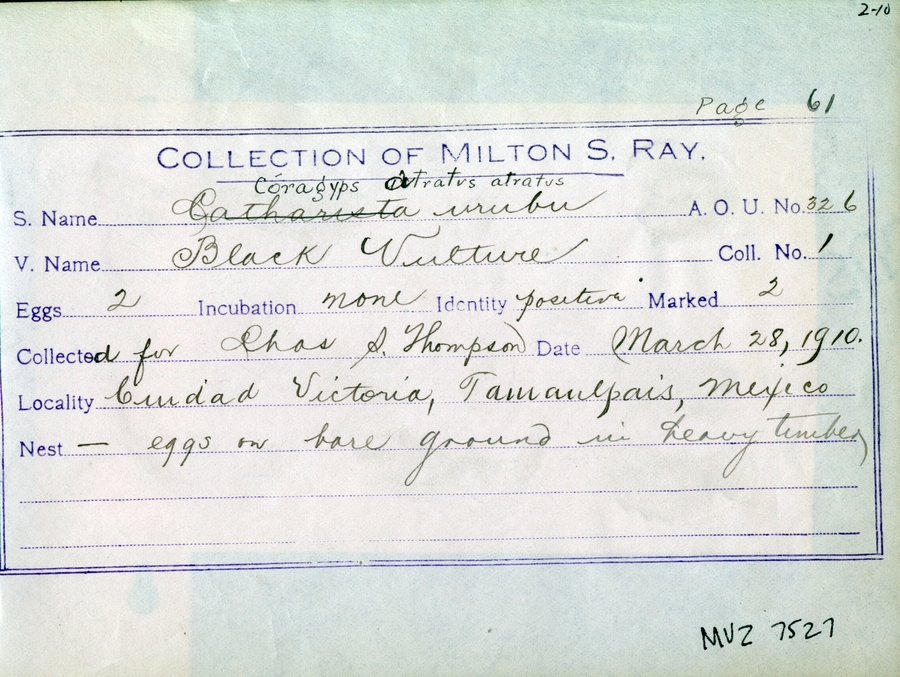 2-10
Page 61
COLLECTION OF MILTON S. RAY.
Coragyps atratus atratus
S. Name Catharista urubu A. O. U. No. 326
V. Name Black Vulture Coll. No. 1
Eggs 2 Incubation none Identity positive Marked 2
Collected for Chas S. Thompson Date March 28, 1910.
Locality Ciudad Victoria, Tamaulpais, Mexico
Nest — eggs on bare ground in heavy timber
MVZ 7527